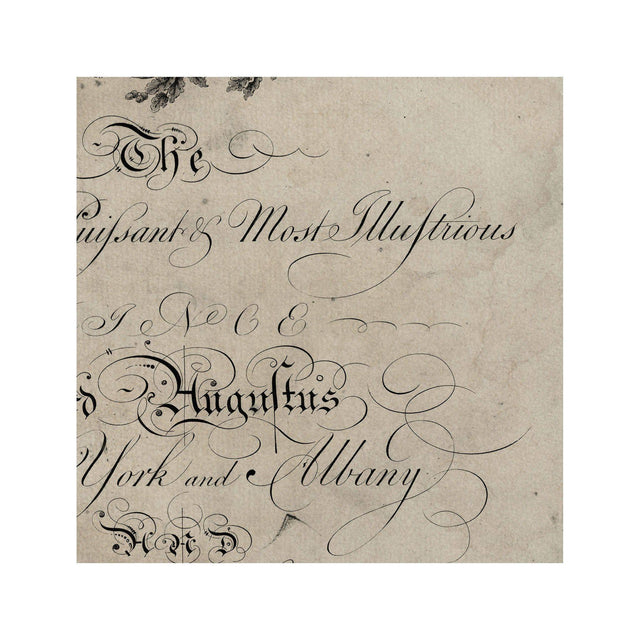 The
uiſsant & Most Illuſtrious
INCE
d Auguſtus
York and Albany
AND